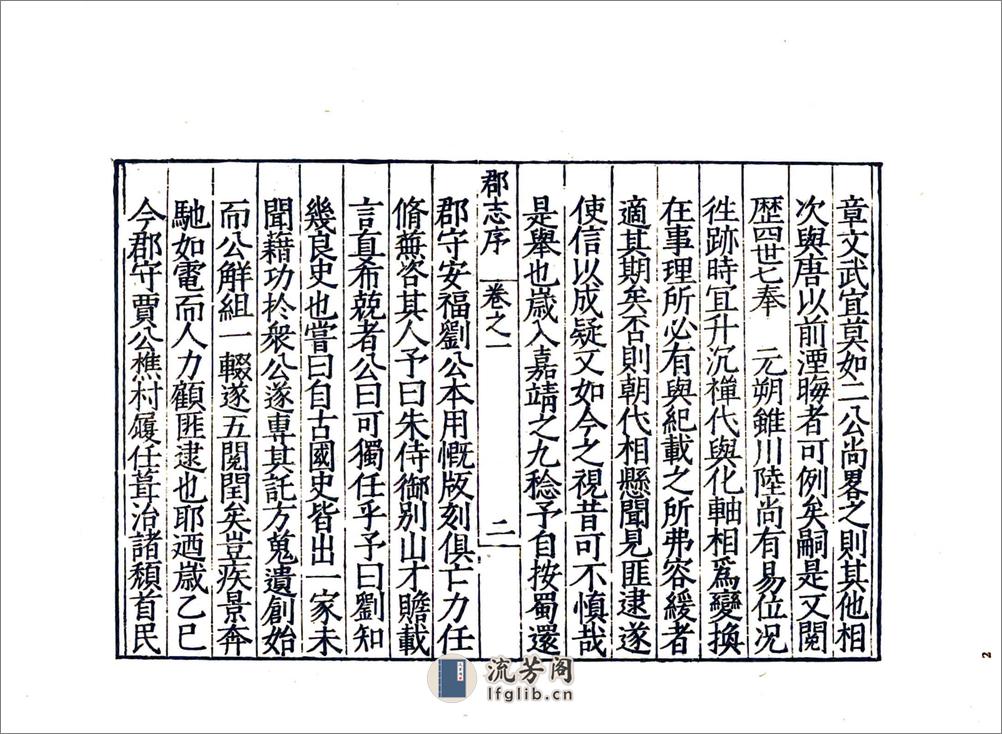 章文武宜莫如二公尚畧之則其他相
次與唐以前湮晦者可例矣嗣是又閱
歷四世七奉　元朔雖川陸尚有易位況
徃跡時宜升沉禪代與化軸相爲變換
在事理所必有與紀載之所弗容緩者
適其期矣否則朝代相懸聞見匪逮遂
使信以成疑又如今之視昔可不慎哉
是舉也歲入嘉靖之九稔予自按蜀還
郡志序　卷之一　二
郡守安福劉公本用慨版刻俱亡力任
脩蕪咨其人予曰朱侍御別山才贍載
言直希兢者公曰可獨任乎予曰劉知
幾良史也嘗曰自古國史皆出一家未
聞藉功於衆公遂專其託方蒐遺創始
而公解組一輟遂五閱閏矣豈疾景奔
馳如電而人力顧匪逮也耶迺歲乙巳
今郡守賈公樵村履任葺治諸頹首民
2
流芳阁
lfglib.cn